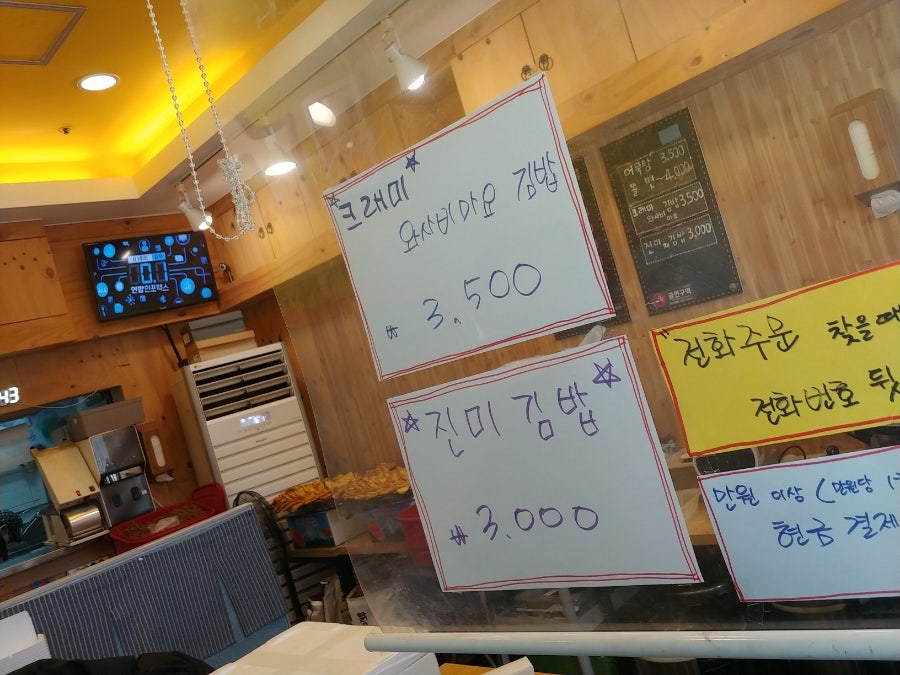 크래미
와사비마요 김밥
₩ 3,500
진미 김밥
₩ 3.000
"전화주문 찾을때
전화번호 뒷
만원 이상 (만원당
현금 결제
어묵탕 3,500
쫄면 4,000
크래미 김밥 3,500
와사비 마요
진미 김밥 3,000
금연구역
연합인포맥스
43